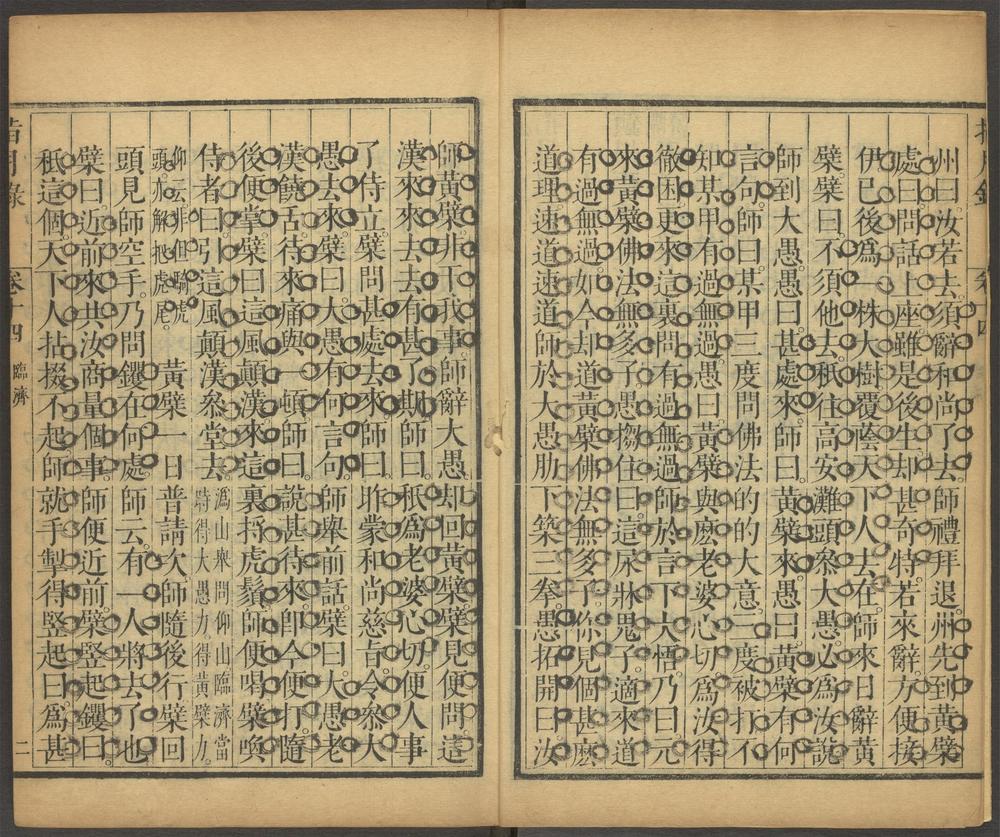 州曰汝若去須辭和尚了去師禮拜退州先到黃檗
處曰問話上座雖是後生却甚奇特若來辭方便接
伊已後為一株大樹覆蔭天下人去在師來日辭黃
檗檗曰不須他去秖往高安灘頭叅大愚必為汝說
師到大愚愚曰甚處來師曰黃檗來愚曰黃檗有何
言句師曰某甲三度問佛法的的大意三度被打不
知某甲有過無過愚曰黃檗與麼老婆心切為汝得
徹困更來這裏問有過無過師於言下大悟乃曰元
來黃檗佛法無多子愚搊住曰這尿牀鬼子適來道
有過無過如今却道黃檗佛法無多子你見個甚麼
道理速道速道師於大愚肋下築三拳愚拓開曰汝
師黃檗非干我事師辭大愚却回黃檗檗見便問這
漢來來去去有甚了期師曰秖為老婆心切便人事
了侍立檗問甚處去來師曰昨蒙和尚慈旨令叅大
愚去來檗曰大愚有何言句師舉前話檗曰大愚老
漢饒舌待來痛與一頓師曰說甚待來即今便打隨
後便掌檗曰這風顛漢來這裏捋虎鬚師便喝檗喚
侍者曰引這風顛漢叅堂去溈山舉問仰山臨濟當
時得大愚力得黃檗力
仰云非但騎虎
頭亦解把虎尾
黃檗一日普請次師隨後行檗回
頭見師空手乃問钁在何處師云有一人將去了也
檗曰近前來共汝商量個事師便近前檗竪起钁曰
秖這個天下人拈掇不起師就手掣得竪起曰為甚
指月錄
卷十四
臨濟
二